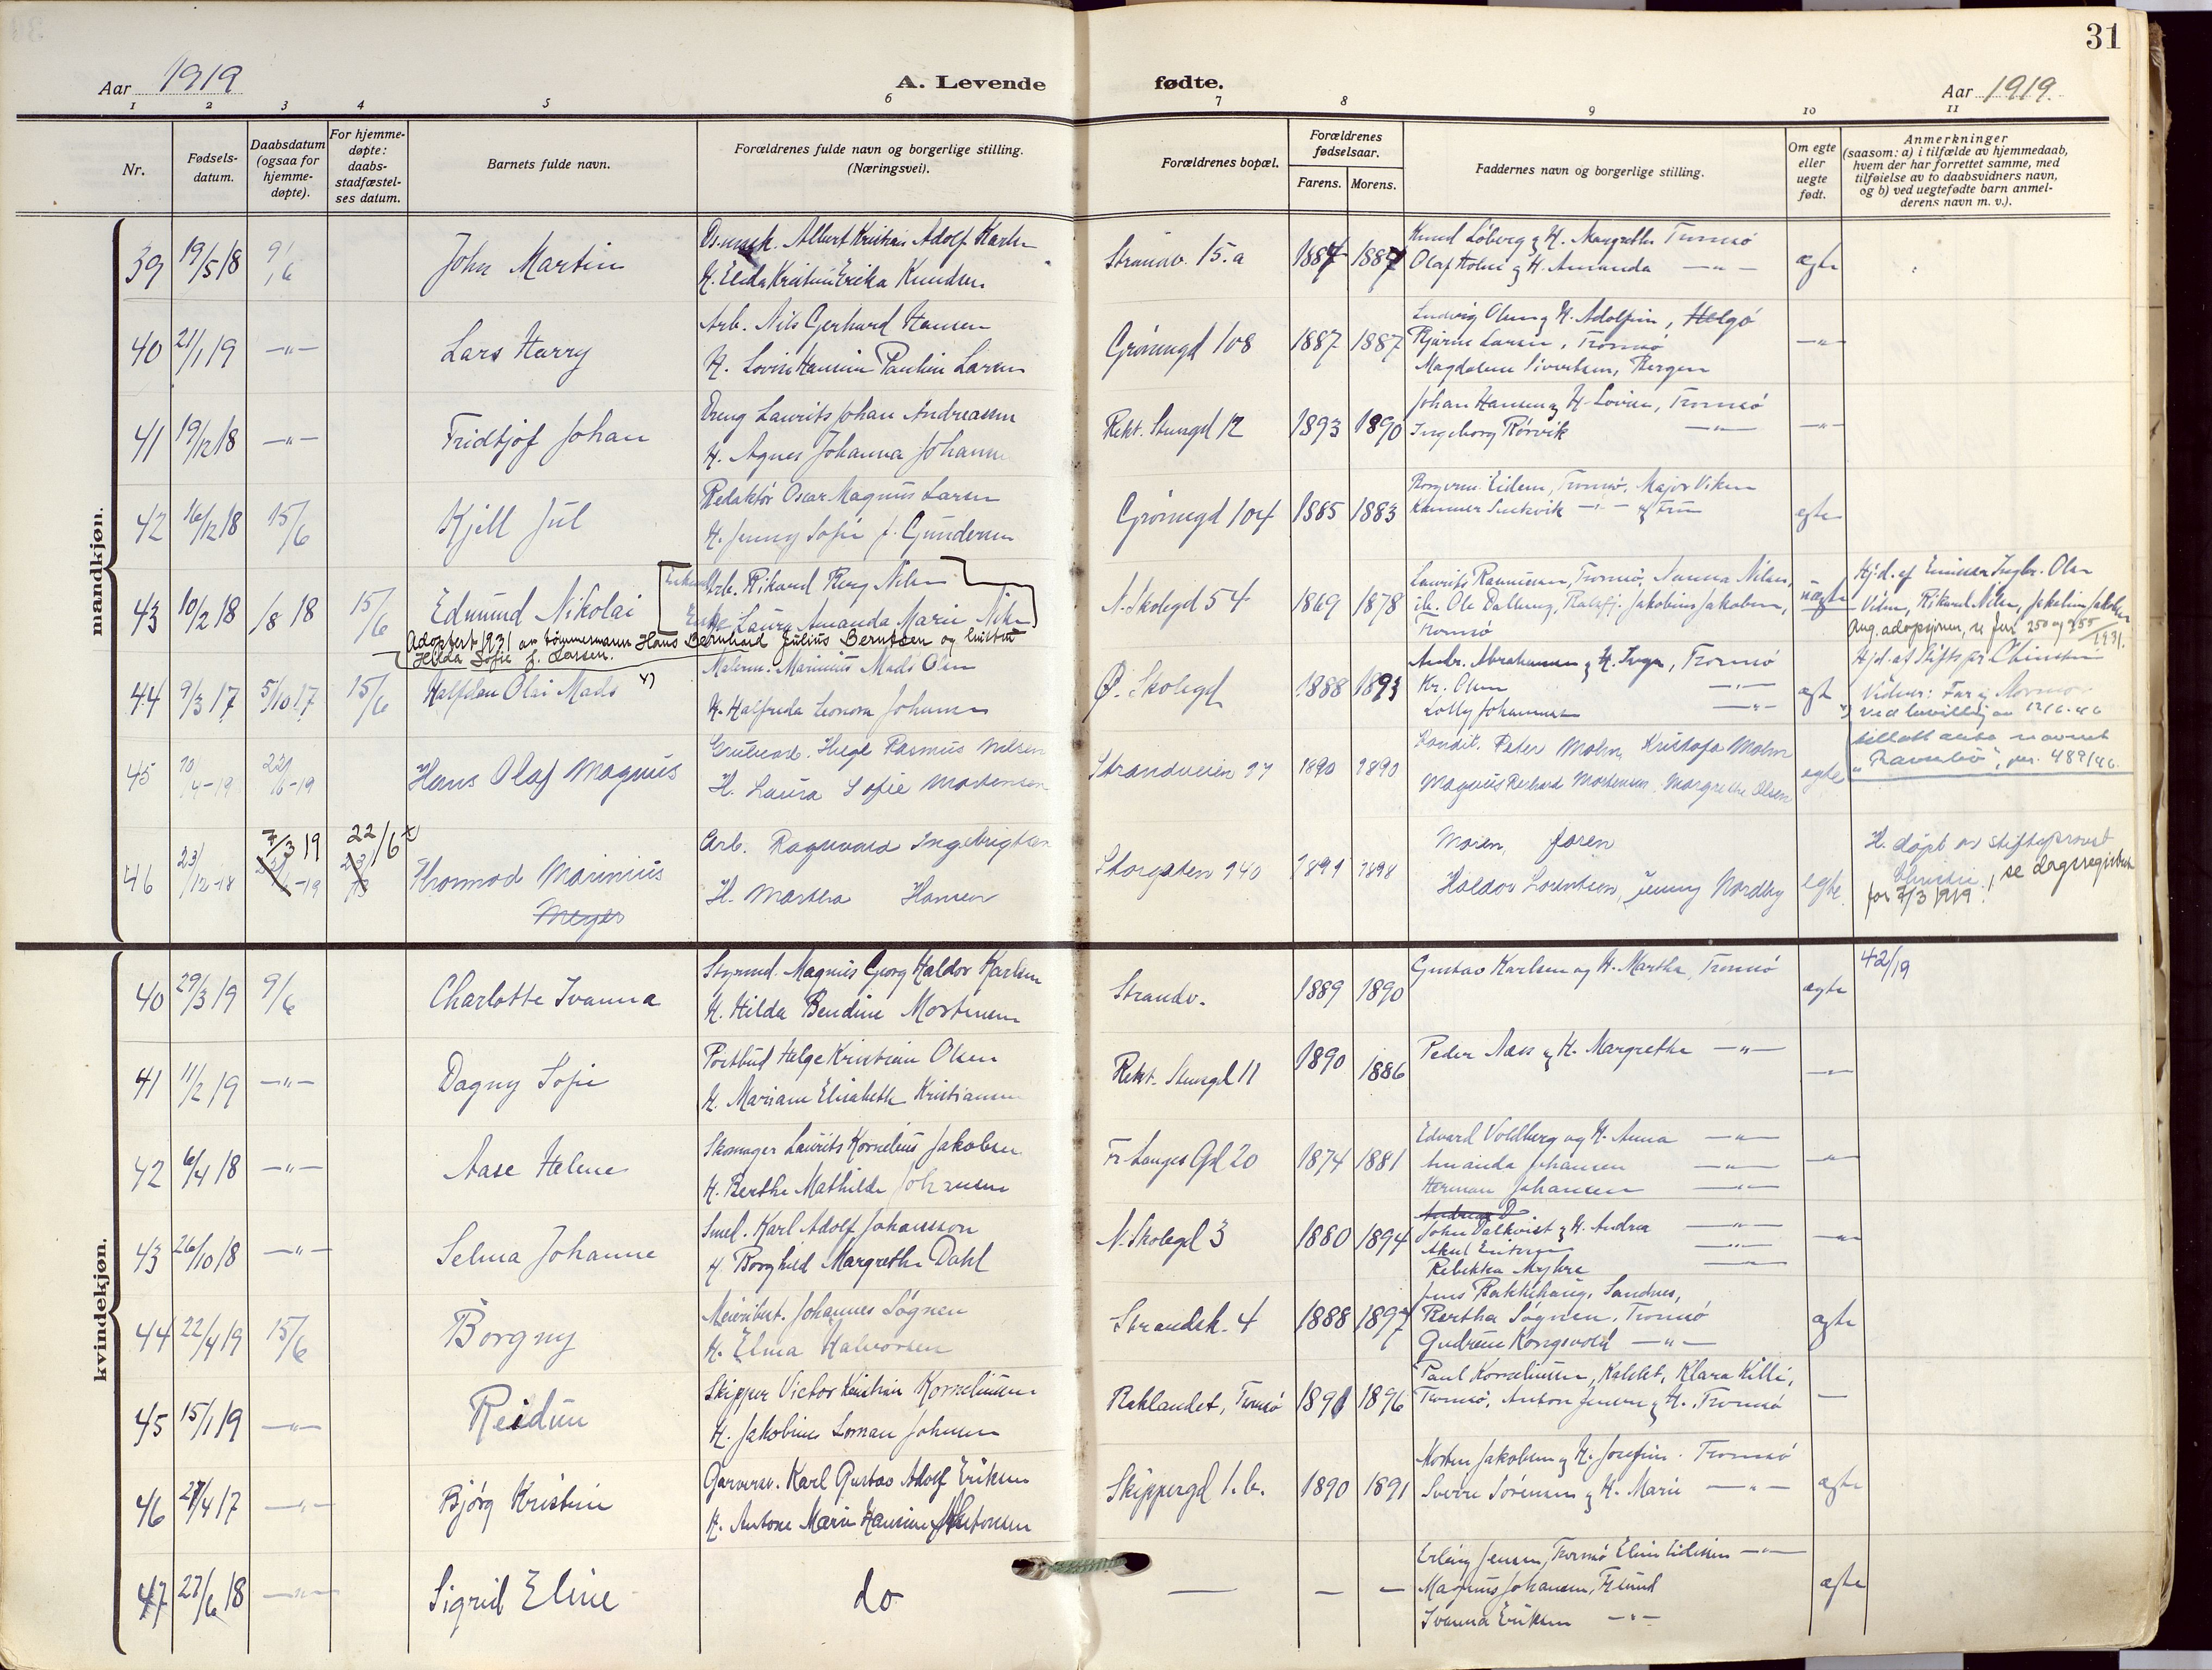 31
Aar 1919
A. Levende fødte.
Aar 1919.
1 2 3 4 5 6 7 8 9 10 11
Nr.
Fødsels-
datum.
Daabsdatum
(ogsaa for
hjemme-
døpte).
For hjemme-
døpte:
daabs-
stadfæstel-
ses datum.
Barnets fulde navn.
Forældrenes fulde navn og borgerlige stilling.
(Næringsvei).
Forældrenes bopæl.
Forældrenes
fødselsaar.
Farens. Morens.
Faddernes navn og borgerlige stilling.
Om egte
eller
uegte
født.
Anmerkninger
(saasom: a) i tilfælde av hjemmedaab,
hvem der har forrettet samme, med
tilføielse av to daabsvidners navn,
og b) ved uegtefødte barn anmel-
derens navn m. v.).
mandkjøn.
39 19/5 18 9/6 John Martin
Albert Kristian Adolf Karlsen
H. Elida Kristine Erika Knudsen
Strandv. 15.a 1884 1887
Knud Löberg & H. Margrethe Tromsö
Olaf Holm & H. Amanda —"—
ægte
40 21/1 19 —"— Lars Harry
Arb. Nils Gerhard Hansen
H. Lovise Hansine Pauline Larsen
Grönnegd 108 1887 1887
Ludvig Olsen & H. Adolfine, Helgö
Bjarne Larsen, Tromsö
Magdalene Sivertsen, Bergen
—"—
41 19/12 18 —"— Fridtjof Johan
Dreng Laurits Johan Andreassen
H. Agnes Johanna Johann
Rekt. Stengd 12 1893 1890
Johan Hansen & H. Lovise, Tromsö
Ingeborg Rörvik —"—
—"—
42 16/12 18 15/6 Kjell Jul
Redaktör Oscar Magnus Larsen
H. Jenny Sofie f. Gundersen
Grönnegd 104 1885 1883
Eidem, Tromsö, Major Viken
—"— & Frue
egte
43 10/2 18 /8 18 15/6 Edmund Nikolai
Arb. Rikard Berg Nilsen
Enke Laura Amanda Marie Nilsen
N. Skolegd 54 1869 1878
Laurits Rasmussen, Tromsö, Nanna Nilsen,
ib. Ole Dalberg, Jakobine Jakobsen,
Tromsö
uægte
Hj.d. af Ingbr. Olsen
Vidne, Rikard Nilsen, Jakobine Jakobsen
Ang. adopsjonen, se jnr 250 og 255/1931.
Adoptert 1931 av tömmermann Hans Bernhard Julius Berntsen og hustru
Hilda Sofie f. Larsen.
44 9/3 17 5/10 17 15/6 Halfdan Olai Mads
Malerm. Marinius Mads Olsen
H. Halfrida Leonora Johansen
Ø. Skolegd 1888 1893
Andr. Abrahamsen & H. Inga, Tromsö
Kr. Olsen —"—
Lolly Johannesen —"—
egte
Hjd. af Stiftspr. Christie
Vidner: Far & Mormor
Ved bevilling av 12/6-46
tillatt anta navnet
"Ramsbö", jnr. 489/46.
45 10/4-19 22/6-19 Hans Olaf Magnus
Helge Rasmus Nilsen
H. Laura Sofie Mortensen
Strandveien 1890 1890
Kondit. Peter Malm, Kristofa Malm
Magnus Rikhard Mortensen, Margrethe Olsen
egte
46 23/12-18 7/3 19 22/6 Thormod Marinius
Meyer
Arb. Ragnvald Ingebrigtsen
H. Martha Hansen
Storgaten 140 1891 1898
Moren, faren
Haldor Lorentsen, Jenny Nordby
egte.
H. döpt av stiftsprovst
Christie, se dagsregistret
for 7/3 1919.
kvindekjøn.
40 29/3 19 9/6 Charlotte Ivanna
Styrmd. Magnus Georg Haldor Karlsen
H. Hilda Bendine Mortensen
Strandv. 1889 1890
Gustav Karlsen og H. Martha, Tromsö
ægte
42/19
41 11/2 19 —"— Dagny Sofie
Postbud Helge Kristian Olsen
H. Mariane Elisabeth Kristiansen
Rekt. Stengd 11 1890 1886
Peder Næss & H. Margrethe —"—
—"—
42 6/4 18 —"— Aase Helene
Skomager Laurits Kornelius Jakobsen
H. Berthe Mathilde Johansen
Fr Langes Gd 20 1874 1881
Edvard Voldberg og H. Anna —"—
Amanda Johansen —"—
Herman Johansen —"—
—"—
43 26/10 18 —"— Selma Johanne
Smed. Karl Adolf Johansson
H. Borghild Margrethe Dahl
N. Skolegd 3 1880 1894
John Dalkvist & H. Andrea —"—
Rebekka Myhre —"—
—"—
44 22/4 19 15/6 Borgny
Johannes Søgnen
H. Elma Halvorsen
Strandsk. 4 1888 1897
Jens Bakkehaug, Sandnes,
Bertha Søgnen, Tromsö
Gudrun Kongsvold —"—
ægte
45 15/1 19 —"— Reidun
Skipper Victor Kristian Korneliussen
H. Jakobine Johnsen
Baklandet, Tromsö 1891 1896
Paul Korneliussen, Kalslet, Klara Killi,
Tromsö, Anton Jensen & H., Tromsö
—
46 27/4 17 —"— Bjórg Kristine
Garversv. Karl Gustav Adolf Eriksen
H. Antone Marie Hansine
Skippergd 1.b. 1890 1891
Morten Jakobsen & H. Josefine. Tromsö
Sverre Sörensen & H. Marie —"—
ægte
47 27/6 18 —"— Sigrid Eline
do
— — —
Erling Jensen, Tromsö —"—
Magnus Johansen, Frlund
Ivanna Eriksen —"—
ægte